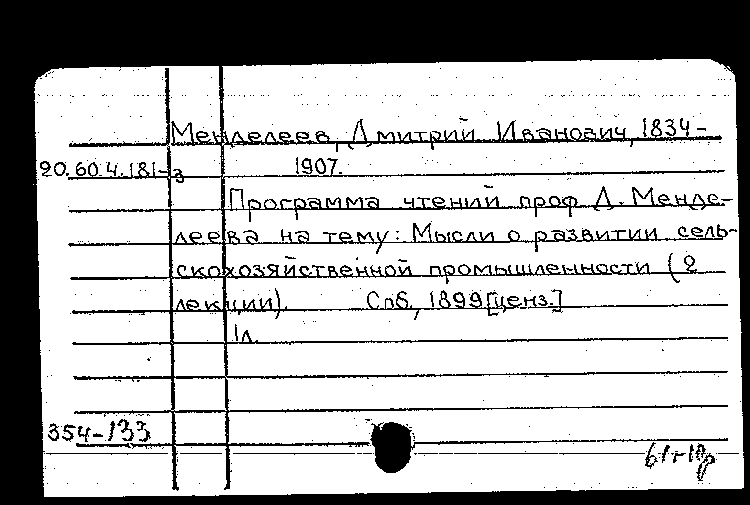 Менделеев, Дмитрий Иванович, 1834-
20.60.4.181-з 1907.
Программа чтений проф Д. Менде-
леева на тему: Мысли о развитии сель-
скохозяйственной промышленности (2
лекции). Спб., 1899 [ценз.]
1л.
354-133